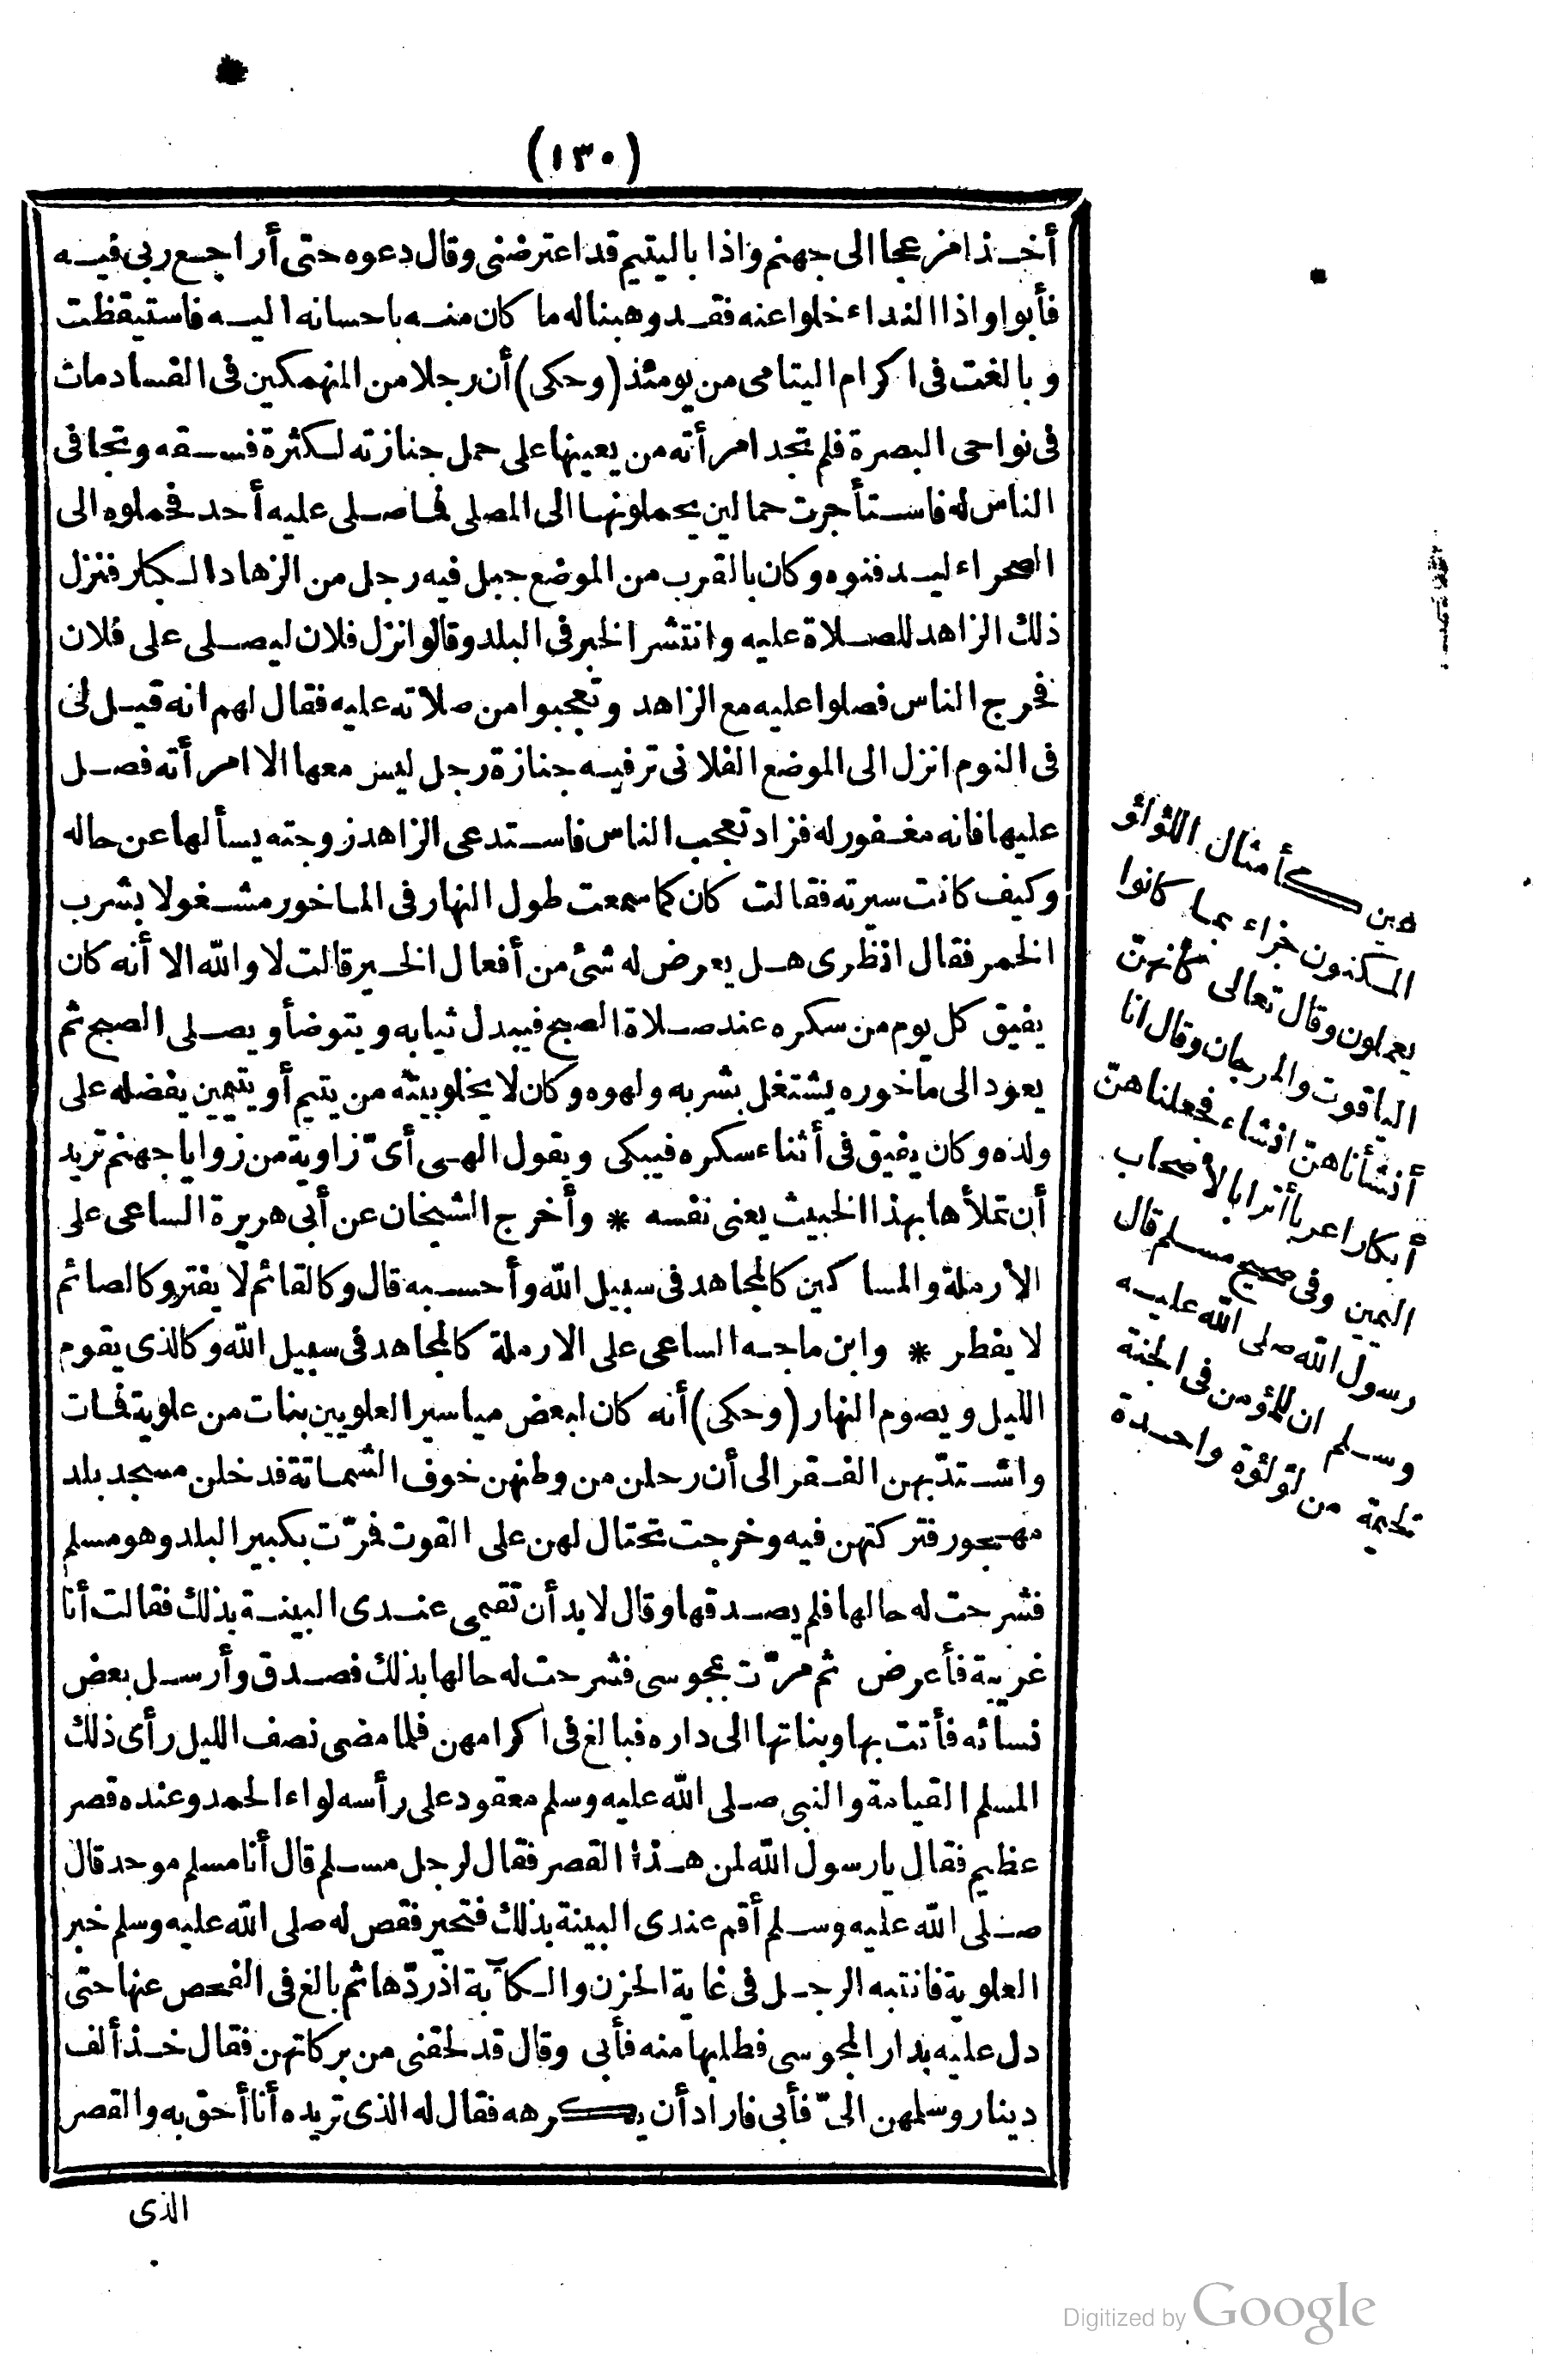 (١٣٠)
أخذا مزعجا الى جهنم واذا باليتيم قد اعترضنى وقال دعوه حتى أراجع ربى فيه
فأبوا واذا النداء خلوا عنه فقد وهبنا له ما كان منه باحسانه اليه فاستيقظت
وبالغت فى اكرام اليتامى من يومئذ (وحكى) أن رجلا من المنهمكين فى الفساد مات
فى نواحى البصرة فلم تجد امرأته من يعينها على حمل جنازته لكثرة فسقه وتجافى
الناس له فاستأجرت حمالين يحملونها الى المصلى فما صلى عليه أحد فحملوه الى
الصحراء ليدفنوه وكان بالقرب من الموضع جبل فيه رجل من الزهاد الكبار فنزل
ذلك الزاهد للصلاة عليه وانتشر الخبر فى البلد وقالوا نزل فلان ليصلى على فلان
فخرج الناس فصلوا عليه مع الزاهد وتعجبوا من صلاته عليه فقال لهم انه قيل لى
فى النوم انزل الى الموضع الفلانى ترفيه جنازة رجل ليس معها الا امرأته فصل
عليها فانه مغفور له فزاد تعجب الناس فاستدعى الزاهد زوجته يسألها عن حاله
وكيف كانت سيرته فقالت كان كما سمعت طول النهار فى الماخور مشغولا بشرب
الخمر فقال انظرى هل يعرض له شئ من أفعال الخير قالت لا والله الا أنه كان
يفيق كل يوم من سكره عند صلاة الصبح فيبدل ثيابه ويتوضأ ويصلى الصبح ثم
يعود الى ماخوره يشتغل بشربه ولهوه وكان لا يخلو بيته من يتيم أو يتيمين يفضله على
ولده وكان يفيق فى أثناء سكره فيبكى ويقول الهى أىّ زاوية من زوايا جهنم تريد
أن تملأها بهذا الخبيث يعنى نفسه * وأخرج الشيخان عن أبى هريرة الساعى على
الأرملة والمساكين كالمجاهد فى سبيل الله وأحسبه قال وكالقائم لا يفتر وكالصائم
لا يفطر * وابن ماجه الساعى على الارملة كالمجاهد فى سبيل الله وكالذى يقوم
الليل ويصوم النهار (وحكى) أنه كان لبعض مياسير العلويين بنات من علوية فمات
واشتدّ بهن الفقر الى أن رحلن من وطنهن خوف الشماتة فدخلن مسجد بلد
مهجور فتركتهن فيه وخرجت تحتال لهن على القوت فمرّت بكبير البلد وهو مسلم
فشرحت له حالها فلم يصدقها وقال لا بد أن تقيمى عندى البينة بذلك فقالت أنا
غريبة فأعرض ثم مرّت بمجوسى فشرحت له حالها بذلك فصدق وأرسل بعض
نسائه فأتت بها وبناتها الى داره فبالغ فى اكرامهن فلما مضى نصف الليل رأى ذلك
المسلم القيامة والنبى صلى الله عليه وسلم معقود على رأسه لواء الحمد وعنده قصر
عظيم فقال يا رسول الله لمن هذا القصر فقال لرجل مسلم قال أنا مسلم موحد قال
صلى الله عليه وسلم أقم عندى البينة بذلك فتحير فقص له صلى الله عليه وسلم خبر
العلوية فانتبه الرجل فى غاية الحزن والكآبة اذ ردّها ثم بالغ فى الفحص عنها حتى
دل عليه بدار المجوسى فطلبها منه فأبى وقال قد لحقنى من بركاتهن فقال خذ ألف
دينار وسلمهن الىّ فأبى فاراد أن يكرهه فقال له الذى تريده أنا أحق به والقصر
الذى
عين كأمثال اللؤلؤ
المكنون جزاء بما كانوا
يعملون وقال تعالى كأنهنّ
الياقوت والمرجان وقال انا
أنشأناهنّ انشاء فجعلناهنّ
أبكارا عربا أترابا لأصحاب
اليمين وفى صحيح مسلم قال
رسول الله صلى الله عليه
وسلم ان للمؤمن فى الجنة
لخيمة من لؤلؤة واحدة
Digitized by Google